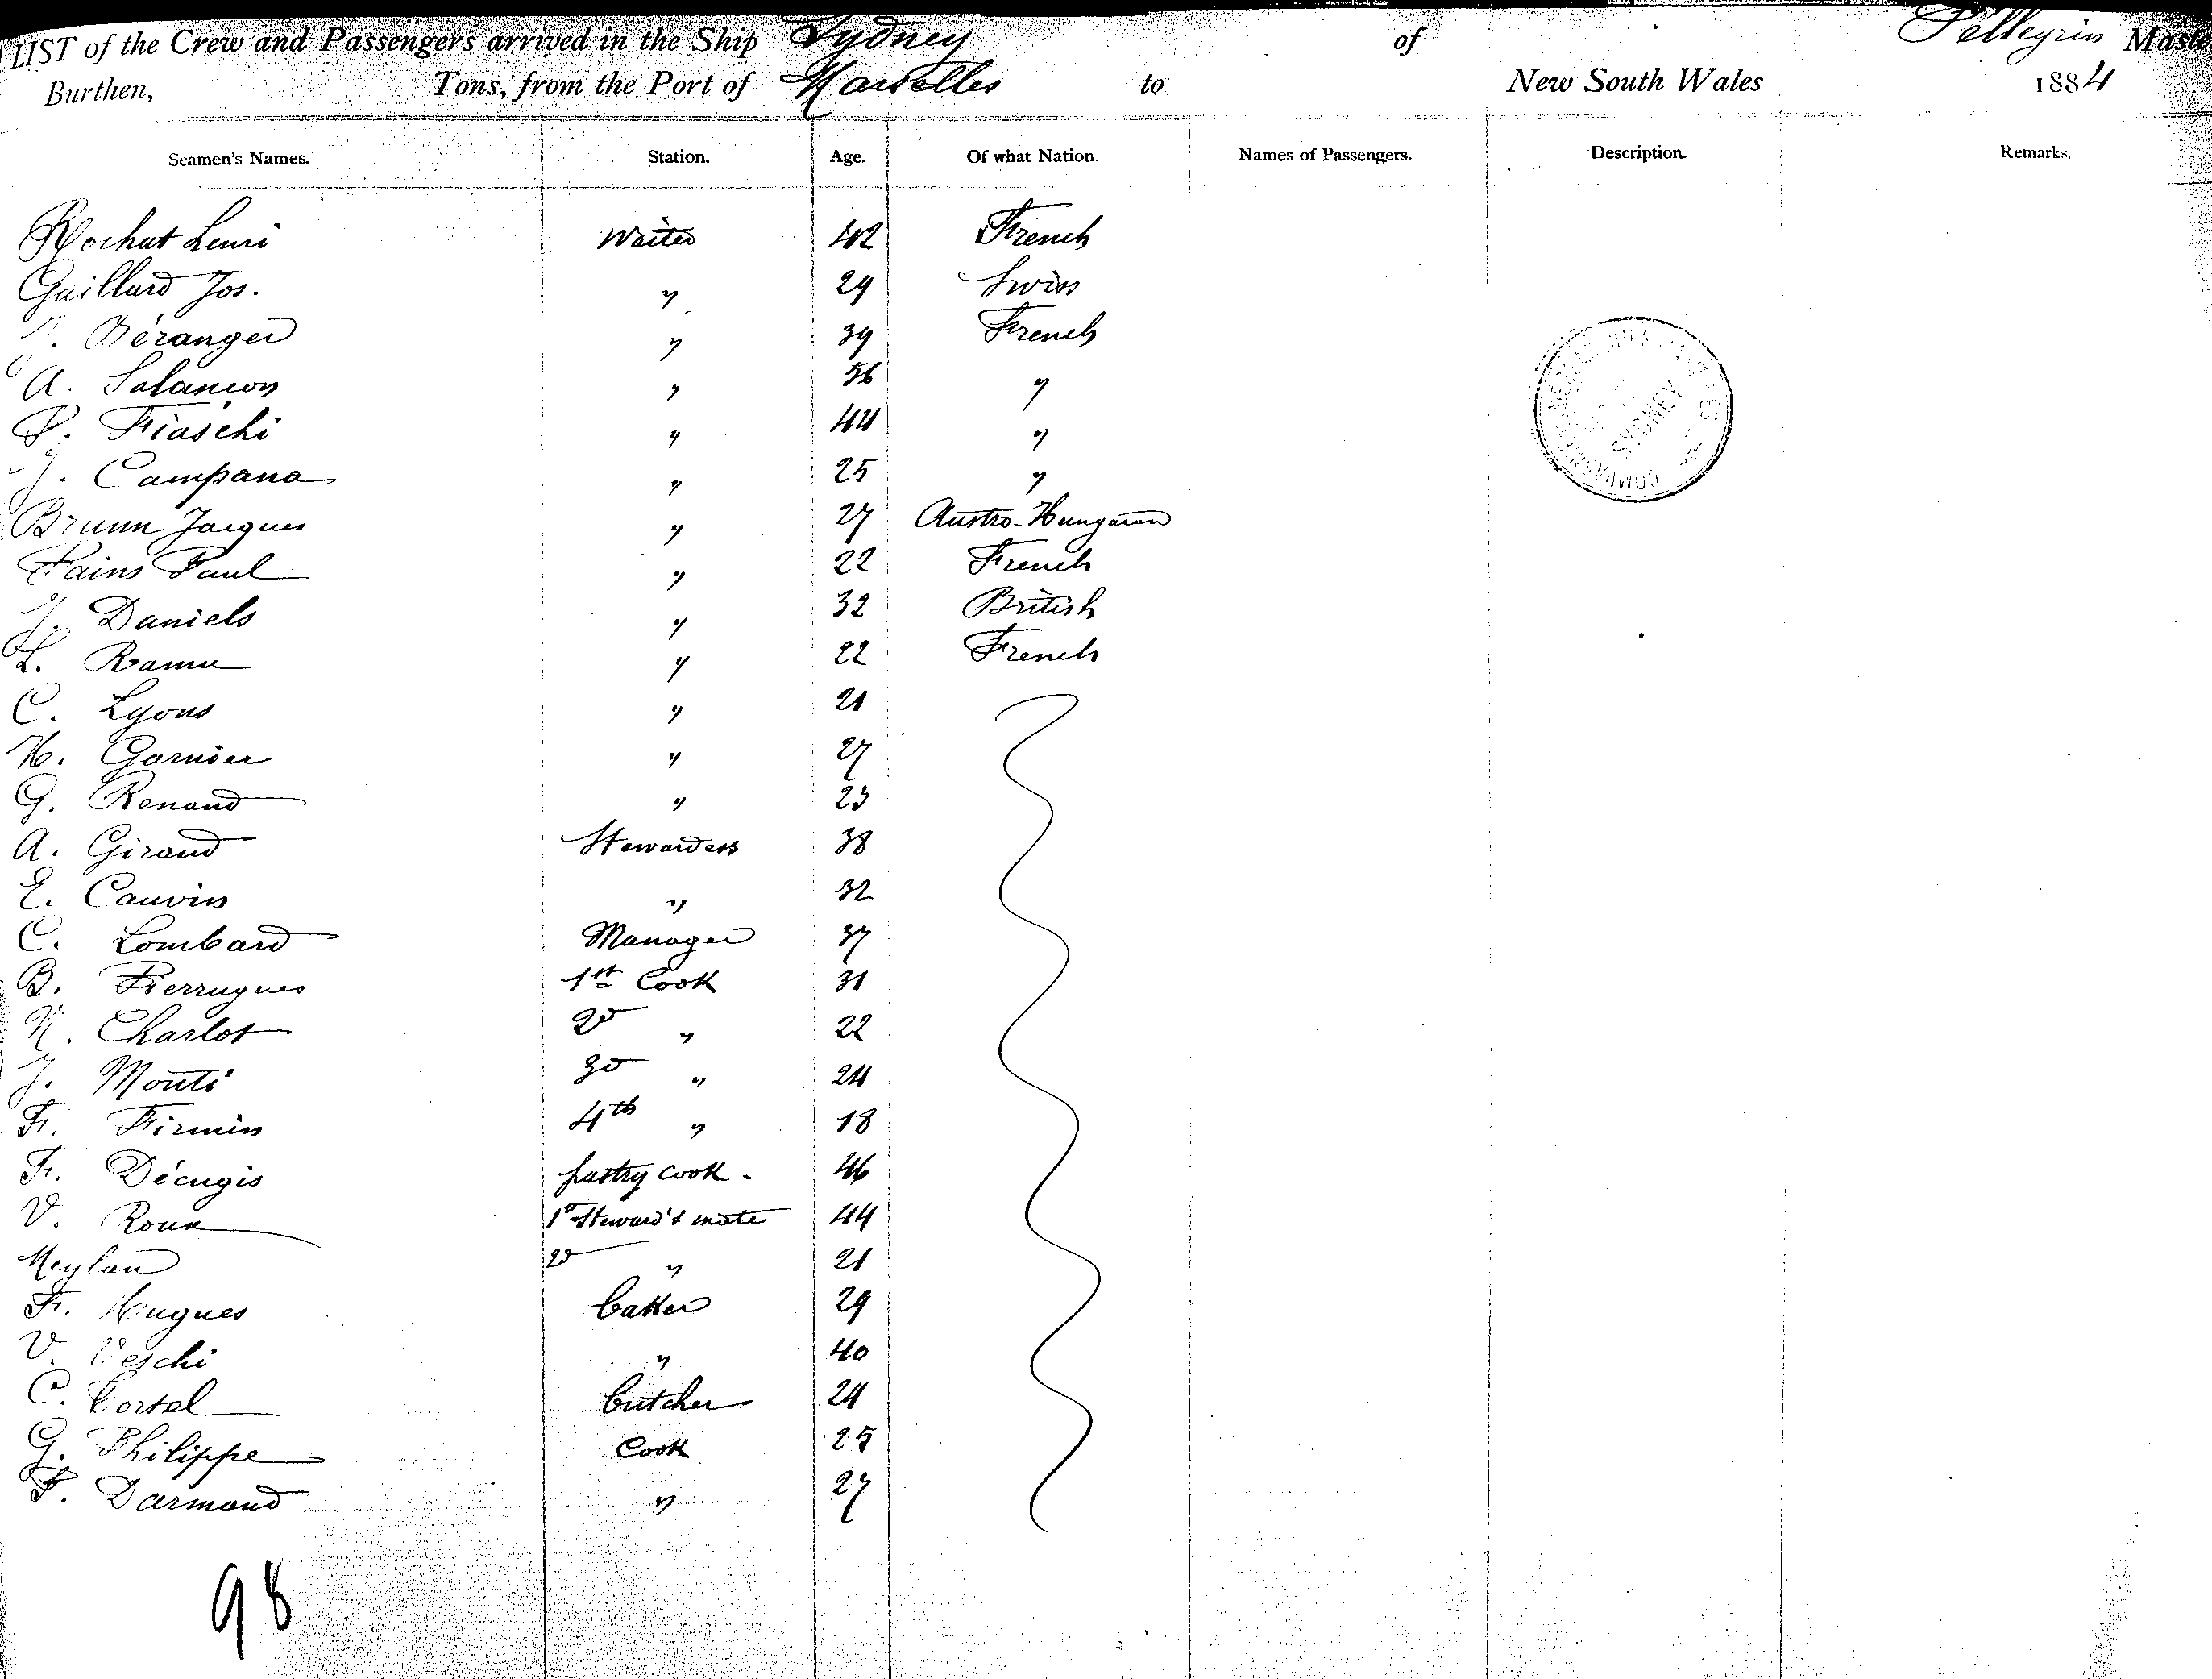 LIST of the Crew and Passengers arrived in the Ship Sydney of Pellegrin Maste
Burthen, Tons, from the Port of Marseilles to New South Wales 1884
Seamen's Names. Station. Age. Of what Nation. Names of Passengers. Description. Remarks.
Rochat Henri Waiter 42 French
Gaillard Jos. " 29 Swiss
Béranger " 39 French
A. " 56 "
P. Fiaschi " 44 "
J. Campana " 25 "
Brunn Jacques " 27 Austro-Hungarian
Pains Paul " 22 French
J. Daniels " 32 British
L. Ramu " 22 French
C. Lyons " 21
H. Garnier " 27
G. Renaud " 23
A. Giraud Stewardess 38
E. Cauvin " 32
C. Lombard Manager 37
B. Pierrugues 1st Cook 31
Charlot 2d " 22
J. Monti 3d " 24
Fr. Firmin 4th " 18
Fr. Décugis pastry cook. 46
V. Roux 1st Steward's mate 44
Meylan 2d " 21
Fr. Hugues baker 29
V. Veschi " 40
C. Cortel butcher 24
G. Philippe Cook 25
F. Darmand " 27
98
COMPAGNIE MESSAGERIES MARITIMES
SYDNEY